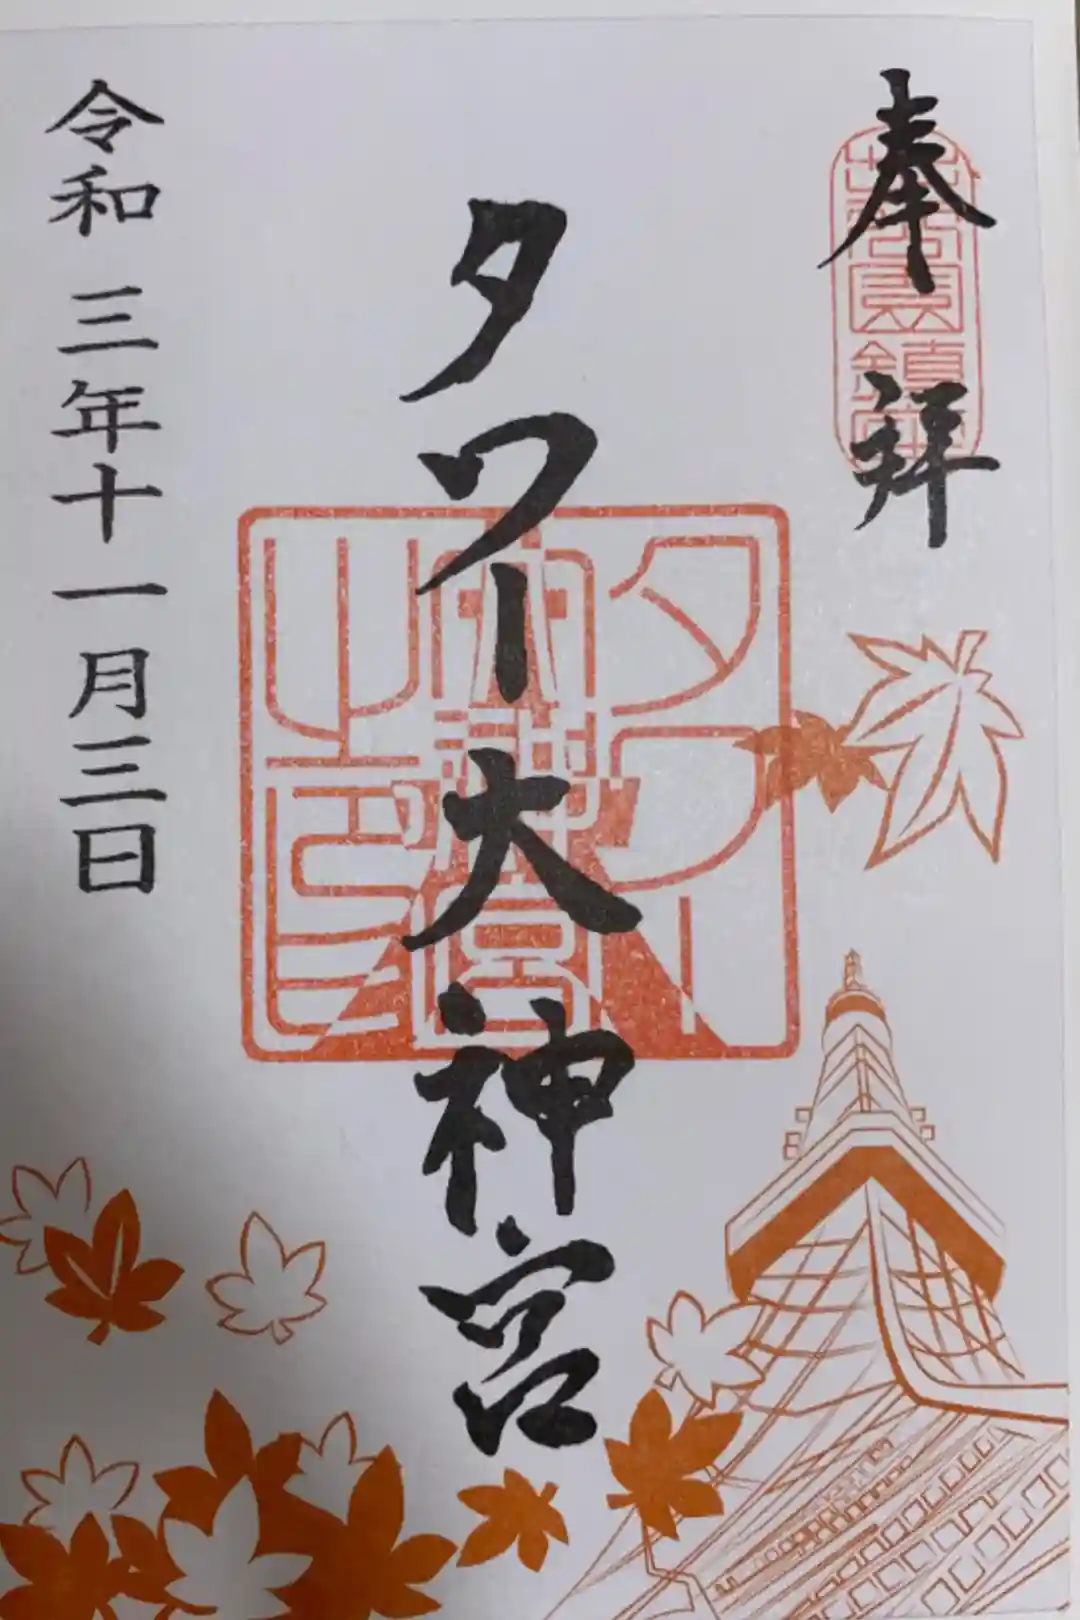 奉拝
タワー大神宮
令和三年十一月三日
タワー
大神宮
之印